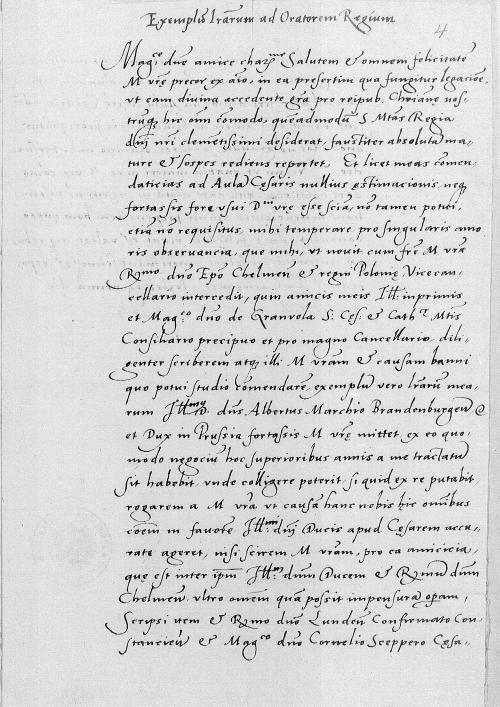 Exemplũ lrarum ad Oratorem Regium
4.
Mag.co dne amice char.me Salutem & omnem felicitatẽ
M vrẽ precor ex aĩo, in ea presertim qua fungitur legacioẽ,
vt eam diuina accedente grã pro reipub. Chrianẽ nos-
traq₃ hic om̃ cõmodo, queadmodũ S. Mtas Regia
dnĩ nri clemẽtissimi desiderat, faustiter absolutã ma-
ture & sospes rediens reportet. Et licet meas cõmen-
daticias ad Aulã Cęsaris nullius ęstimacionis neq₃
fortassis fore vsui D. vrę esse sciã, nõ tamen potui,
etiã nõ requisitus mihi temperare pro singularis amo
ris obseruancia, que mihi, vt nouit cum frẽ M vrã
R.mo dno Epõ Chelmeñ & regni Polonię Vicecan-
cellario intercedit, quin amicis meis Ill: inprimis
et Mag.co dno de Granvola S: Cęs: & Cath.ę Mtis
Consiliario precipuo et pro magno Cancellario dili-
genter scriberem atq₃ illi M vram & causam banni
quo potui studio cõmendarẽ, exemplũ vero lrarũ mea-
rum Ill.mus dns Albertus Marchio Brandenburgeñ
et Dux in Prussia fortassis M vrę mittet ex eo quo-
modo negociũ hoc superioribus annis a me tractatũ
sit habebit, vnde colligere poterit, si quid ex re putabit,
rogarem a M vra vt causã hanc nobis hic omnibus
cõem in fauorẽ Ill.mi dnĩ Ducis apud Cęsarem accu-
rate ageret, nisi scirem M vram, pro ea amicicia,
que est inter ipm̃ Ill.m dnm Ducem & R.mũ dnm
Chelmeñ, vltro omnẽ quã possit impensurã operam,
Scripsi item & R.mo dno Lundeñ Confirmato Con-
stancieñ & Mag.co dno Cornelio Sceppero Cęsa-